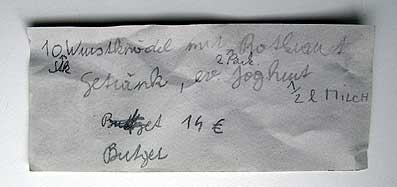 10 Wurstknödel mit Rotkraut
Stk
2 Pack.
Getränk, ev. Joghurt
1/2 l MILCH
Budget 14 €
Butget